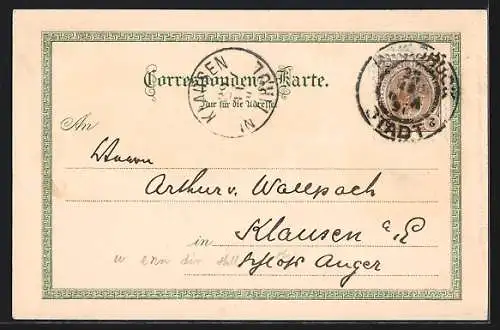 Correspondenz-Karte.
Nur für die Adresse
KLAUSEN
TIROL
STADT
An
Herrn
Arthur v. Wallpach
in Klausen a/E
Schloss Anger